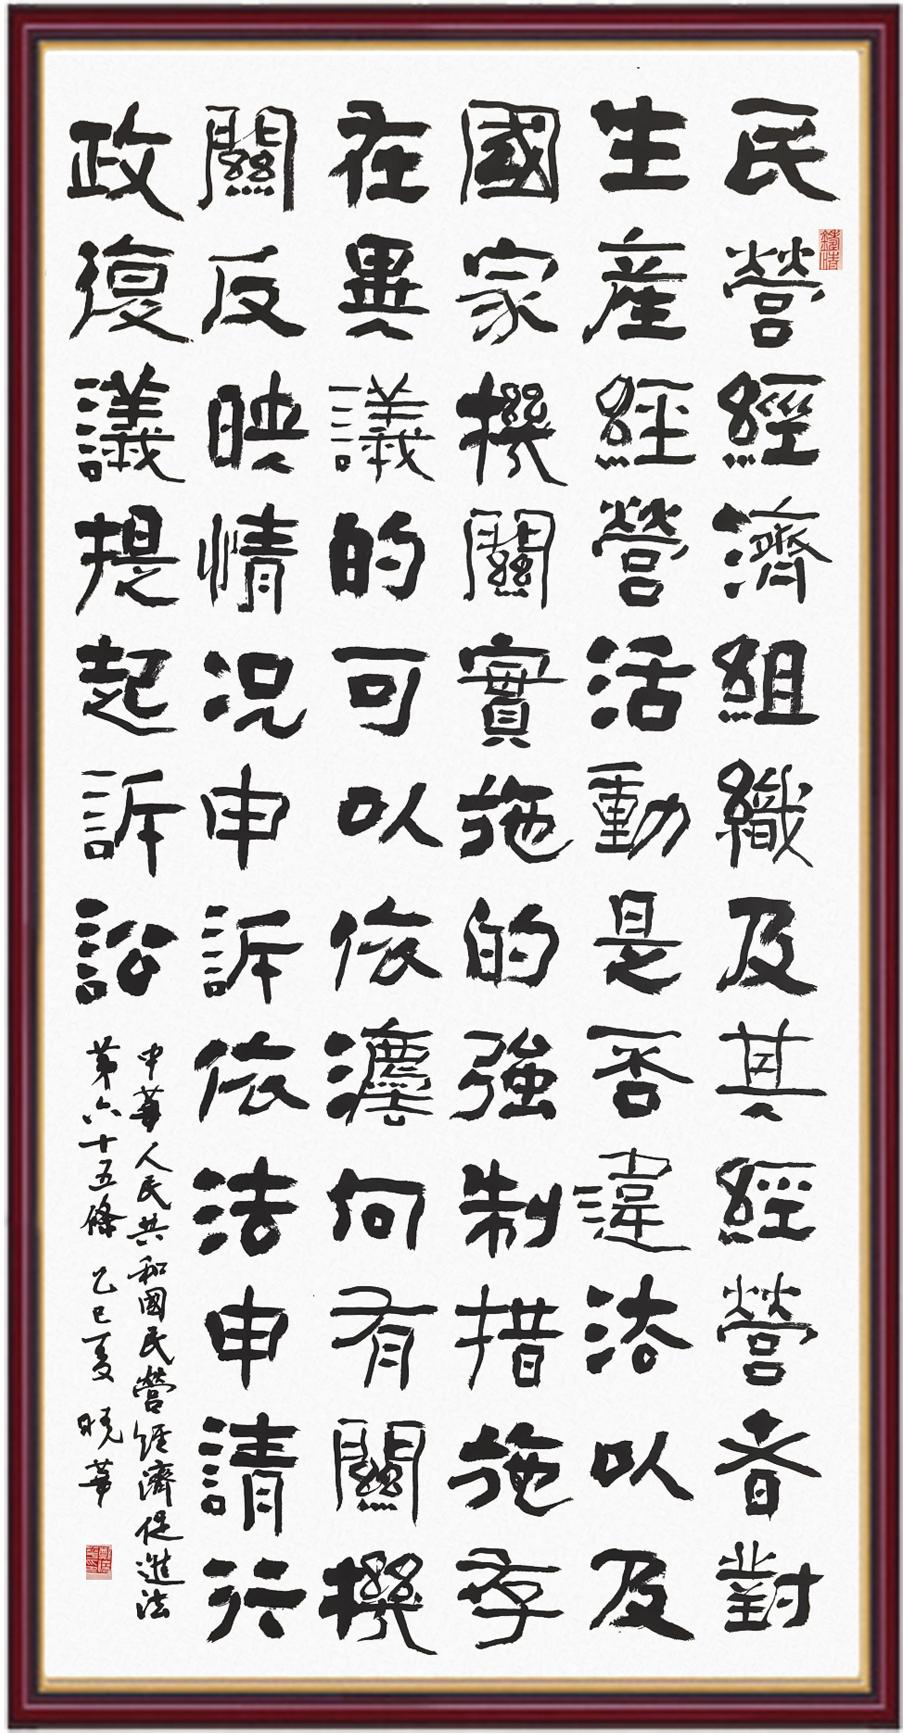 民營經濟組織及其經營者對
生產經營活動是否違法以及
國家機關實施的強制措施存
在異議的可以依灋向有關機
關反映情況申訴依法申請行
政復議提起訴訟
中華人民共和國民營經濟促進法
第六十五條 乙巳夏 曉華